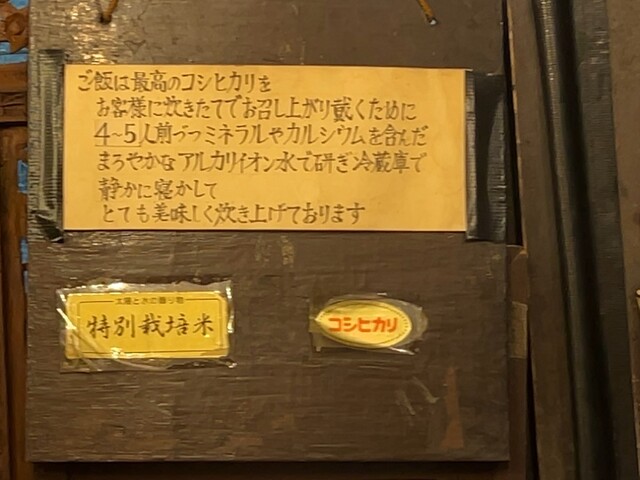 ご飯は最高のコシヒカリを
お客様に炊きたてでお召し上がり戴くために
4~5人前づつミネラルやカルシウムを含んだ
まろやかなアルカリイオン水で研ぎ冷蔵庫で
静かに寝かして
とても美味しく炊き上げております
太陽と水の贈り物
特別栽培米
コシヒカリ